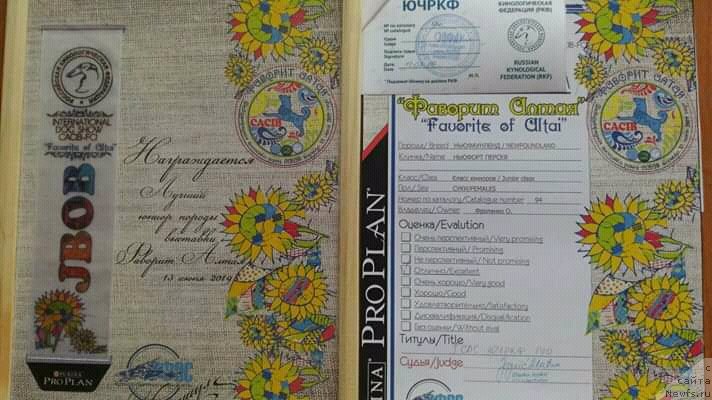 INTERNATIONAL
DOG SHOW
CACIB-FCI
"Favorite of Altai"
JBOB
PURINA
PRO PLAN
Награждается
Лучший
юниор породы
выставки
Фаворит Алтая
ФАВОРИТ АЛТАЯ
CACIB
ЮЧРКФ
№ по каталогу
№ catalogue
Судья
Judge
Подпись судьи
Signature
Дата
Date
КИНОЛОГИЧЕСКАЯ
ФЕДЕРАЦИЯ (РКФ)
RUSSIAN
KYNOLOGICAL
FEDERATION (RKF)
"Фаворит Алтая"
"Favorite of Altai"
CACIB
Порода/ Breed НЬЮФАУНДЛЕНД / NEWFOUNDLAND
Кличка/Name НЬЮФОРТ ПЕРСЕЯ
Класс/Class Класс юниоров / Junior class
Пол/ Sex СУКИ/FEMALES
Номер по каталогу/Catalogue number 94
Владелец/ Owner
Оценка/Evalution
Очень перспективный/Very promising
Перспективный/ Promising
Не перспективный/ Not promising
Отлично/Excellent
Очень хорошо/Very good
Хорошо/Good
Удовлетворительно/Satisfactory
Дисквалификация/Disqualification
Без оценки/Without eval
Титулы/Title
Судья/Judge
PURINA PRO PLAN
с
сайта
Newfs.ru